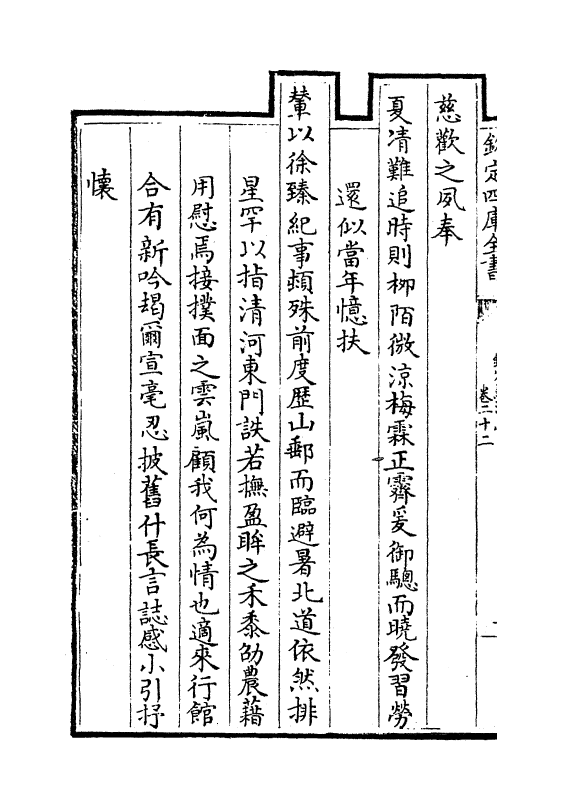 欽定四庫全書
卷二十二
慈歡之夙奉
夏凊難追時則柳陌微涼梅霖正霽爰御驄而曉發習勞
還似當年憶扶
輦以徐臻紀事頻殊前度歷山郵而臨避暑北道依然排
星罕以指清河東門詄若撫盈眸之禾黍劭農藉
用慰焉接撲面之雲嵐顧我何為情也適來行館
合有新吟朅爾宣毫忍披舊什長言誌感小引抒
懷